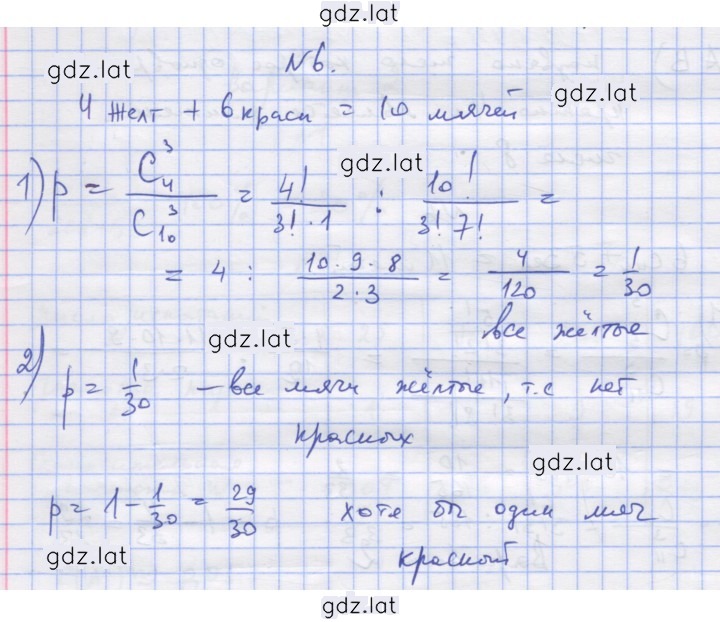 gdz.lat
№6.
gdz.lat
4 желт + 6 красн = 10 мячей
gdz.lat
gdz.lat
1) p = C₄³ / C₁₀³ = 4! / 3!·1 : 10! / 3! 7! =
= 4 : 10·9·8 / 2·3 = 4 / 120 = 1 / 30
все жёлтые
gdz.lat
2) p = 1 / 30 – все мячи жёлтые, т.е нет
красных
gdz.lat
p = 1 – 1 / 30 = 29 / 30 хотя бы один мяч
красный
gdz.lat
gdz.lat